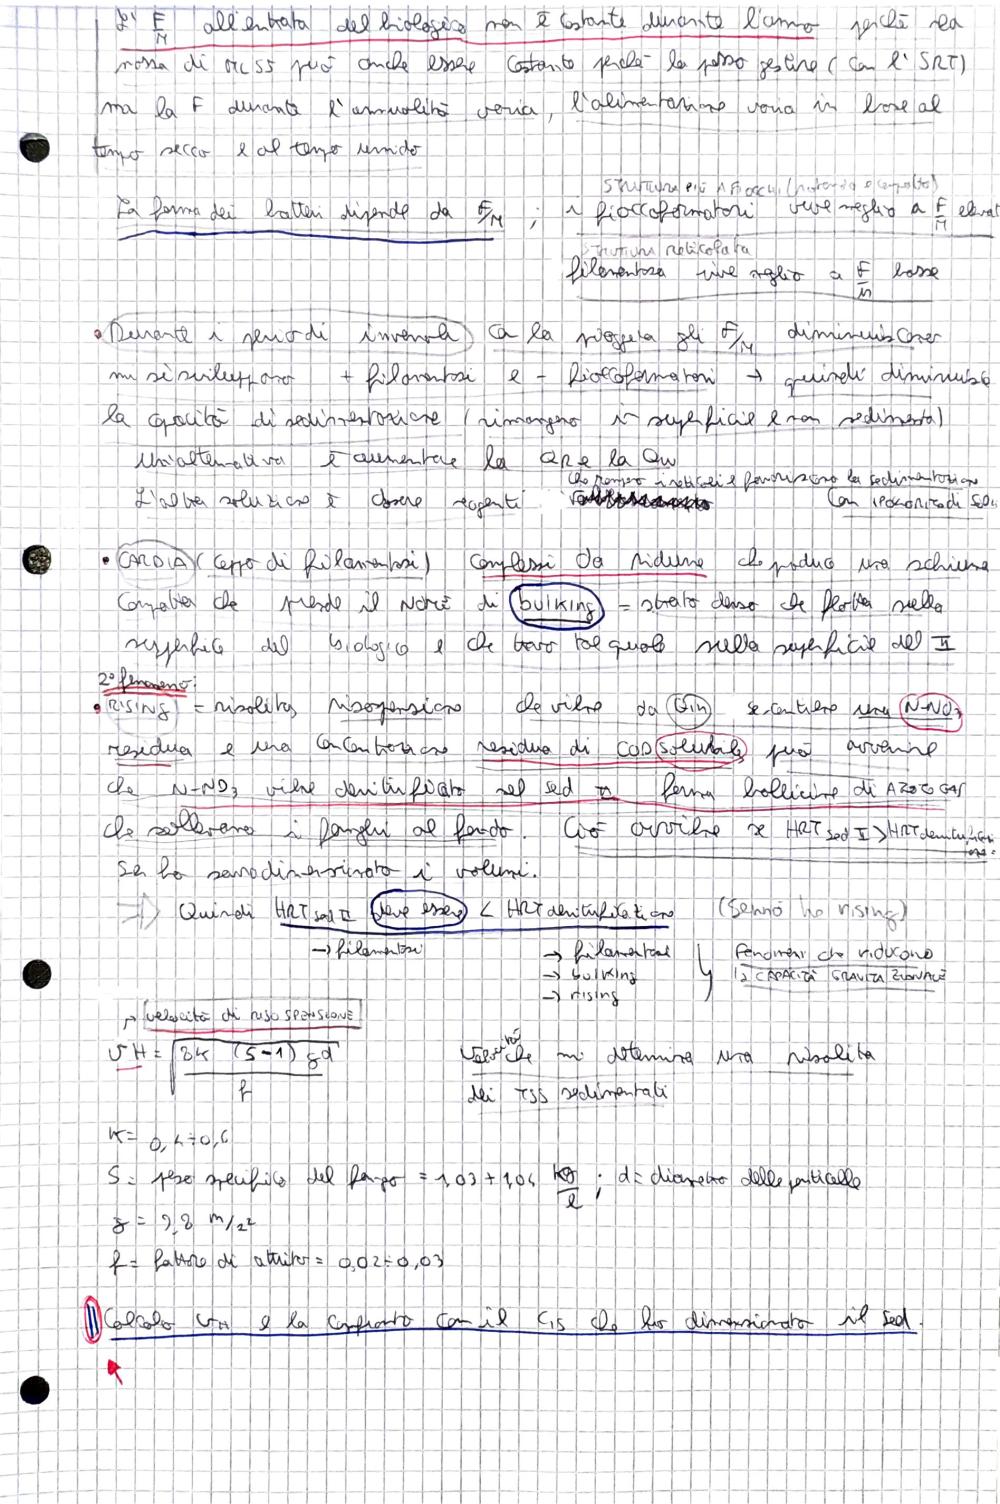 L' F/M all'entrata del biologico non è costante durante l'anno perchè la
massa di MLSS può anche essere costante perchè la posso gestire (con l'SRT)
ma la F durante l'annualità varia, l'alimentazione varia in base al
tempo secco e al tempo umido
STRUTTURA PIÙ A FIOCCHI (rotonda e compatta)
La forma dei batteri dipende da F/M ; i fioccoformatori vive meglio a F/M elevat
STRUTTURA reticolata
filamentosa vive meglio a F/M basse
• Durante i periodi invernali la pioggia gli F/M diminuiscono
mi si sviluppano + filamentosi e - fioccoformatori → quindi diminuisce
la capacità di sedimentazione (rimangono in superficie e non sedimenta)
Un'alternativa è aumentare la QRE la Qw
che rompono i reticoli e favoriscono la sedimentazione
L'altra soluzione è dosare reagenti con ipoclorito di sodio
• CARDIA (ceppo di filamentosi) complessi da ridurre che produce una schiuma
compatta che prende il nome di bulking = strato denso che flotta sulla
superficie del biologico e che trovo tal quale sulla superficie del II
2° fenomeno:
• RISING = risalita, risospensione che viene da Qin se contiene una N-NO3
residua e una concentrazione residua di COD solubile può avvenire
che N-NO3 viene denitrificato nel sed II forma bollicine di AZOTO GAS
che sollevano i fanghi al fondo. Ciò avviene se HRT sed II > HRT denitrificazione
Se ho sovradimensionato i volumi.
⇒ Quindi HRT sed II deve essere < HRT denitrificazione (sennò ho rising)
→ filamentosi
→ filamentosi
→ bulking
→ rising
Fenomeni che riducono
la CAPACITÀ GRAVITAZIONALE
→ velocità di risospensione
vH = √ 8K (S-1) gd / f
Velocità che mi determina una risalita
dei TSS sedimentati
K = 0,4 ÷ 0,6
S = peso specifico del fango = 1,03 ÷ 1,04 kg/l ; d = diametro delle particelle
g = 9,8 m/s2
f = fattore di attrito = 0,02 ÷ 0,03
Calcolo vH e la confronto con il CIS che ho dimensionato il sed.